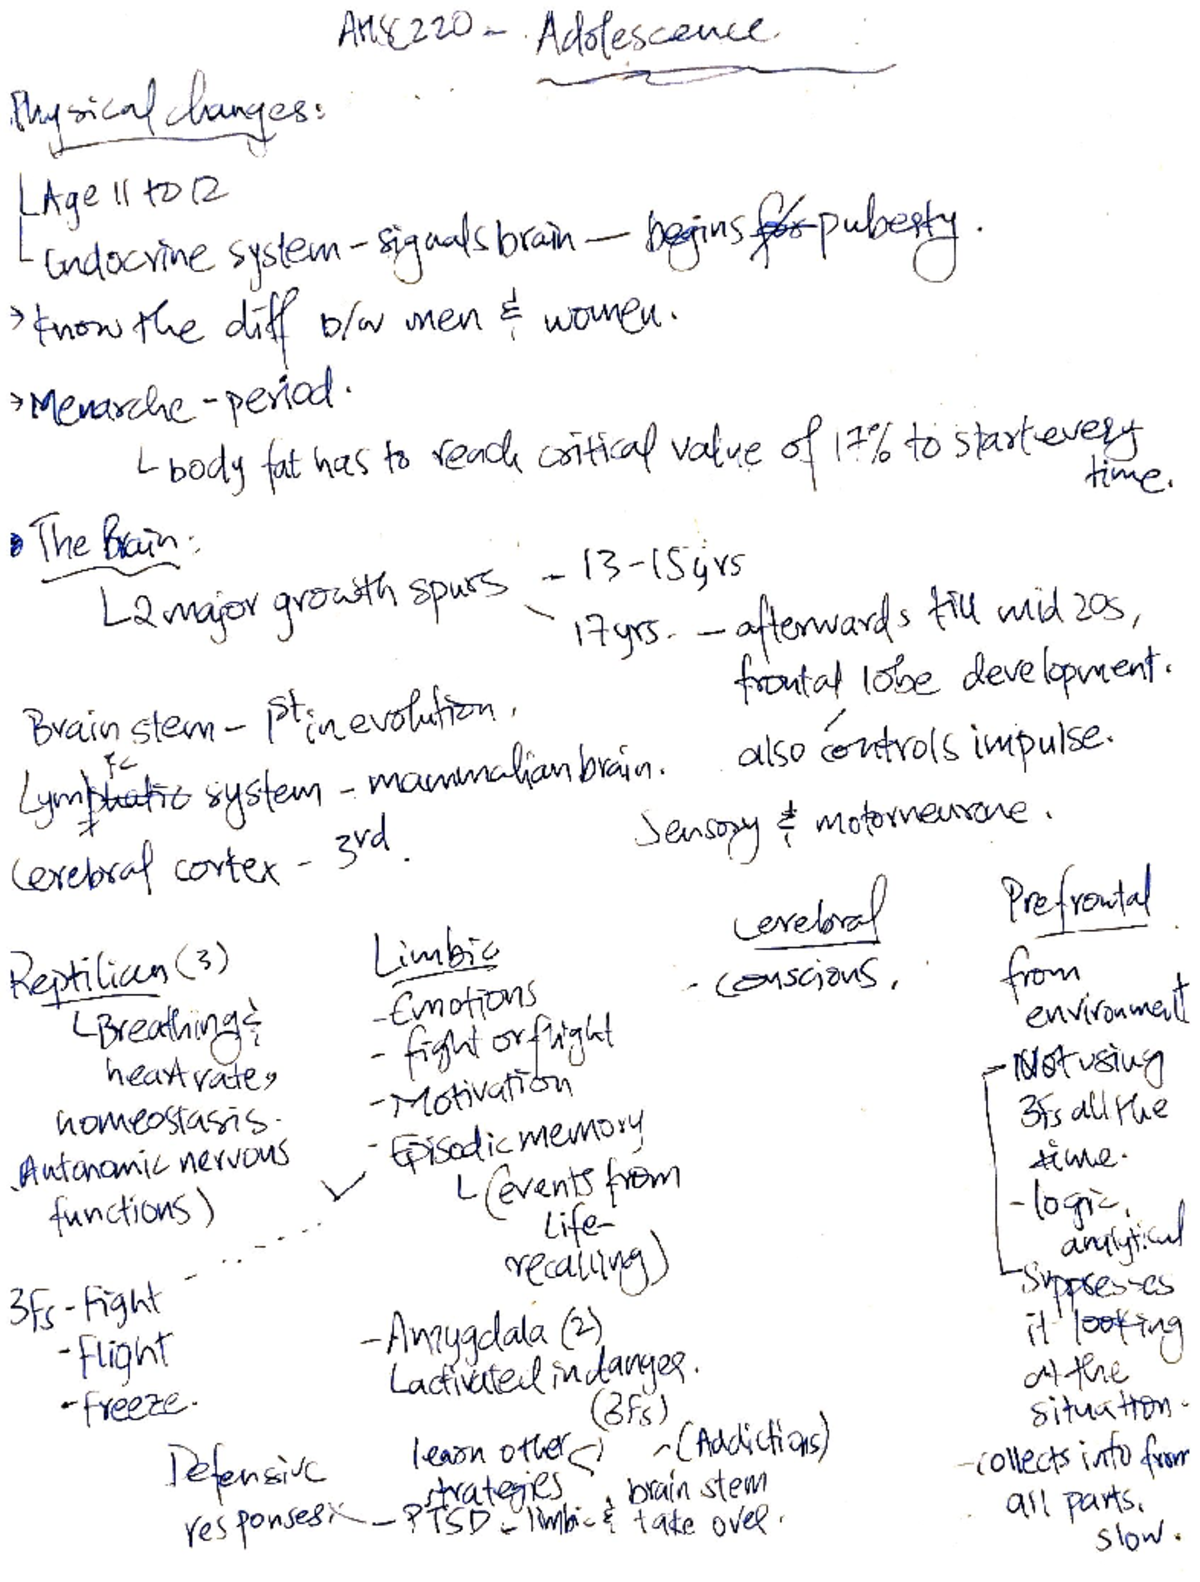 AHSC220 - Adolescence
Physical changes:
Age 11 to 12
Endocrine system - signals brain - begins for puberty.
→ know the diff b/w men & women.
→ Menarche - period.
body fat has to reach critical value of 17% to start every
time.
The Brain:
2 major growth spurs - 13-15yrs
17yrs. - afterwards till mid 20s,
frontal lobe development.
also controls impulse.
Brain stem - 1st in evolution.
Lymphatic system - mammalian brain.
Sensory & motorneurone.
Cerebral cortex - 3rd.
Reptilian (3)
Breathing &
heart rate,
homeostasis.
Autonomic nervous
functions)
3Fs - Fight
- Flight
- Freeze.
Limbic
- Emotions
- fight or flight
- Motivation
- Episodic memory
(events from
life -
recalling)
- Amygdala (2)
activated in danger.
(3Fs)
learn other
strategies
- (Addictions)
Defensive
responses - PTSD - limbic & brain stem
take over.
Cerebral
- conscious.
Prefrontal
from
environment
- Not using
3Fs all the
time.
- logic,
analytical
Suppesses
it looking
at the
situation.
- collects info from
all parts.
slow.